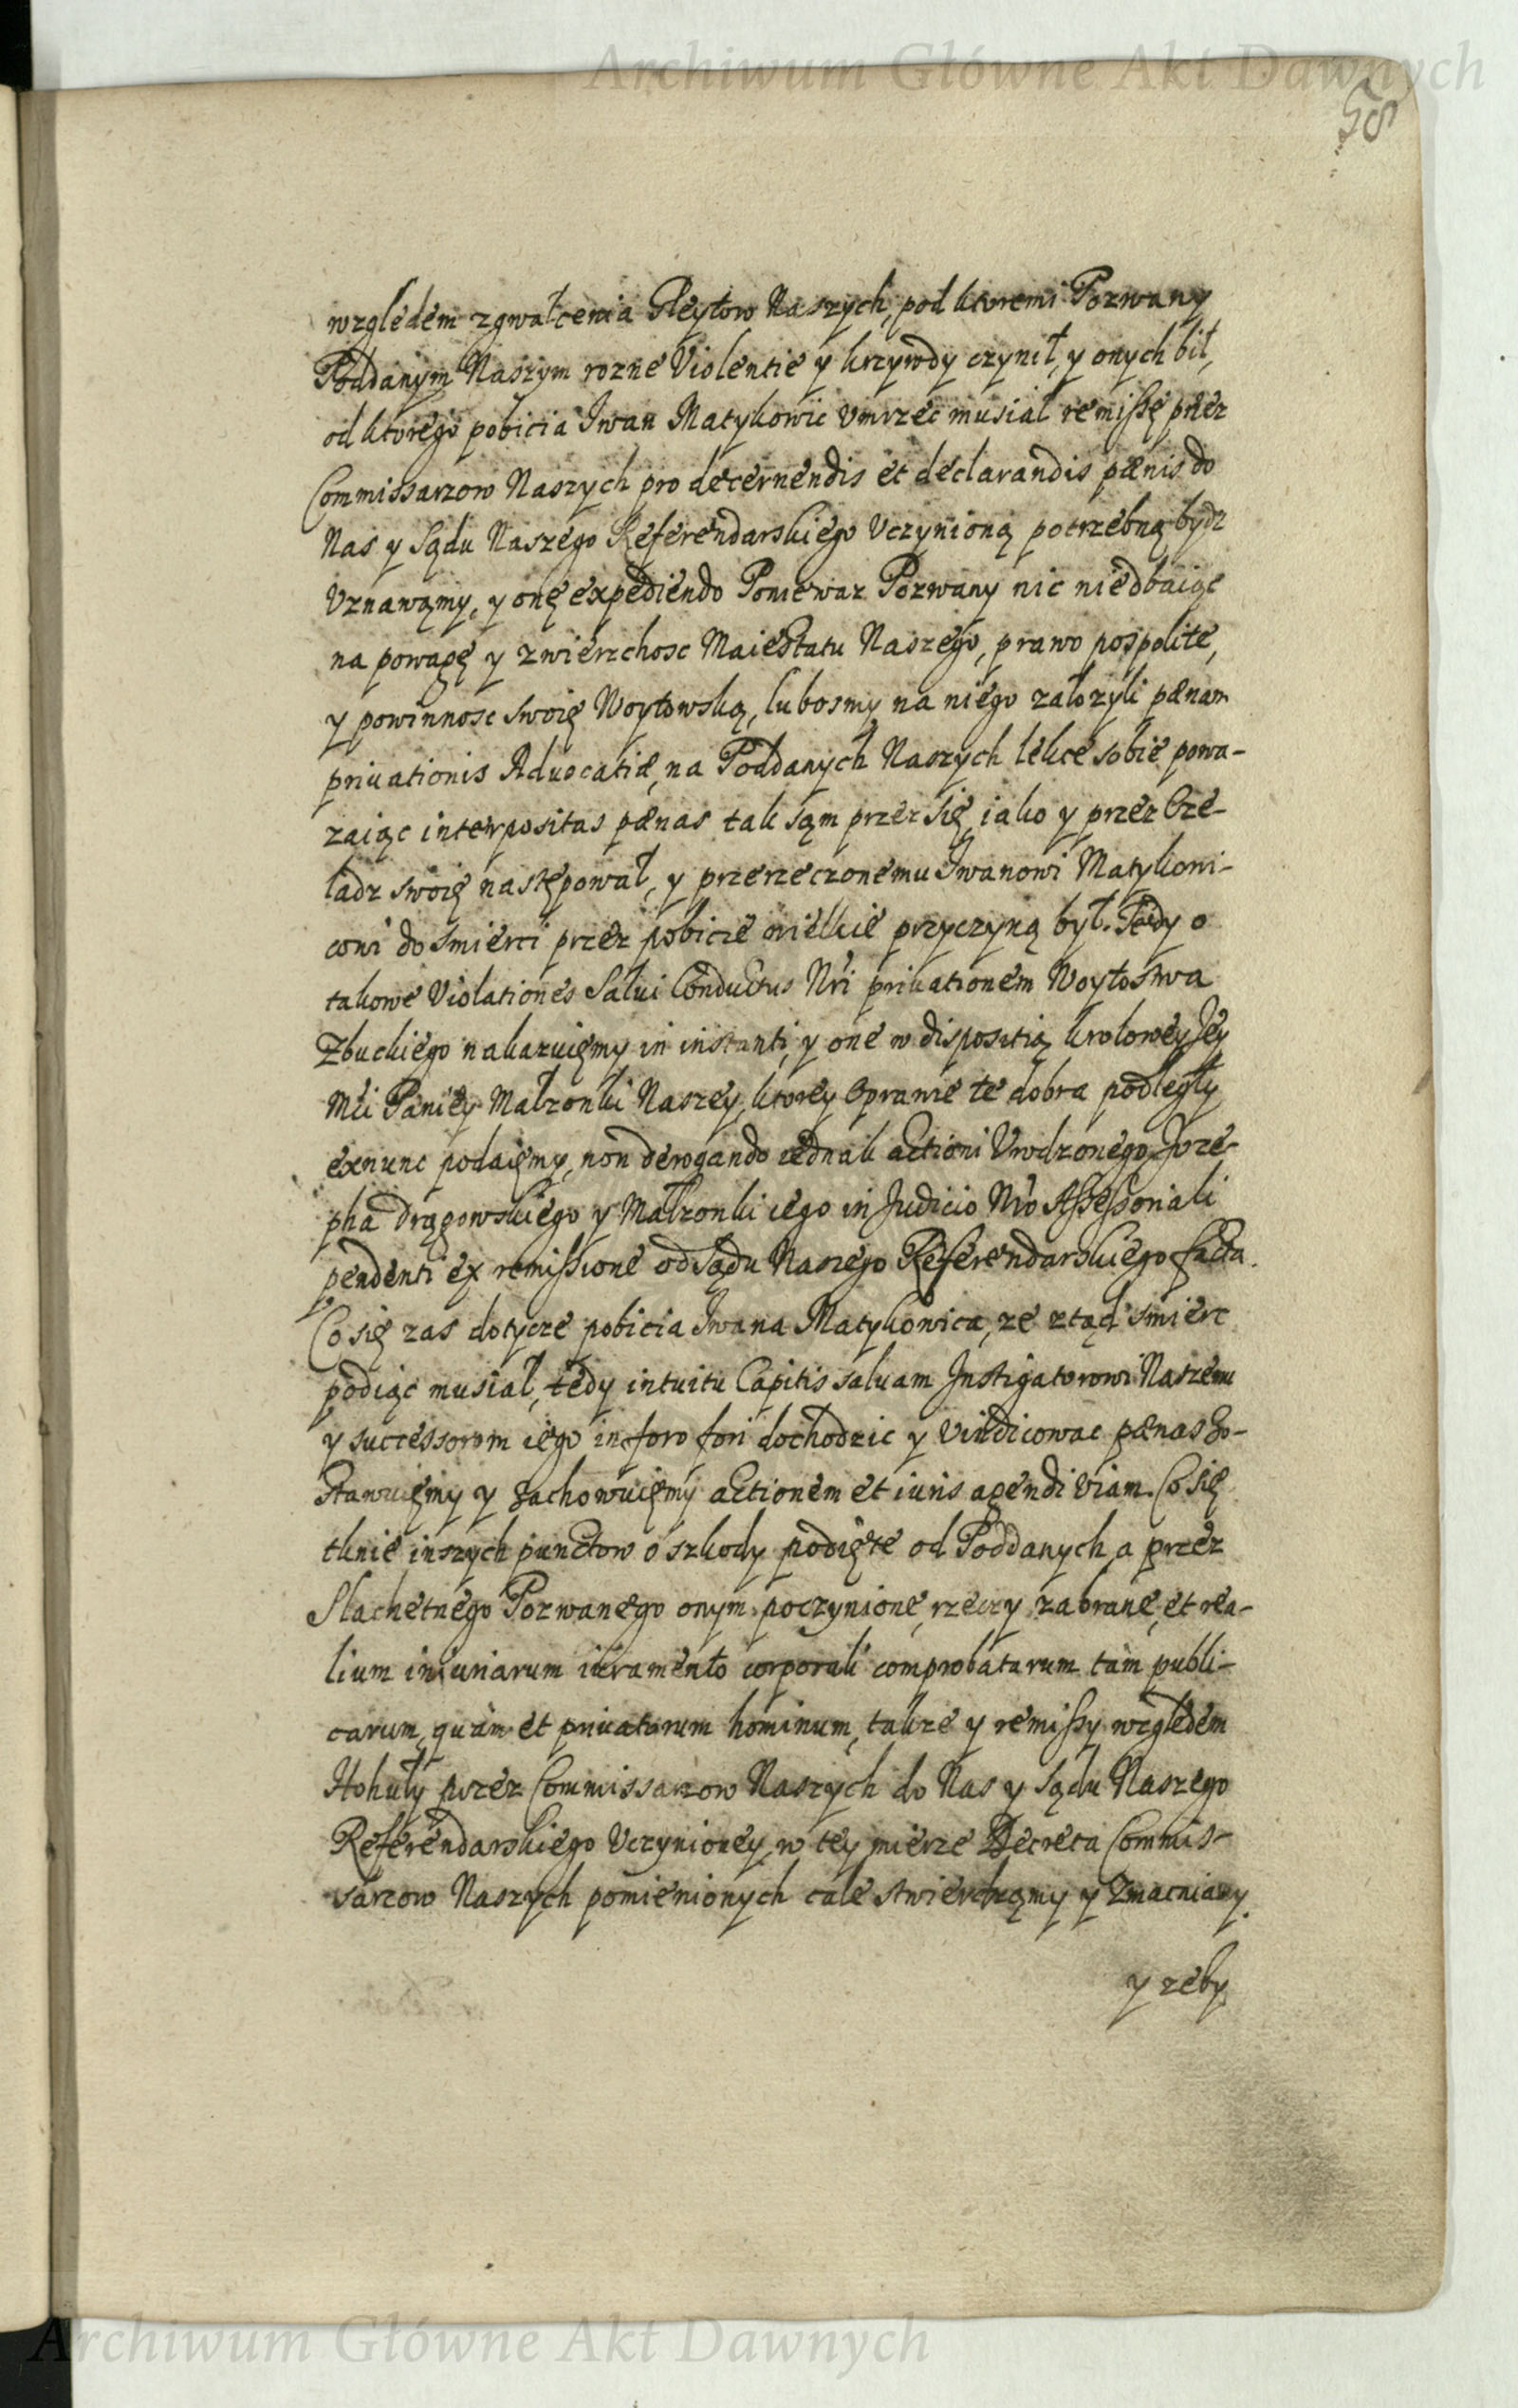 Archiwum Główne Akt Dawnych
58
względem zgwałcenia Gleytow Naszych, pod ktoremi Pozwany
Poddanym Naszym rozne Violentie y krzywdy czynił, y onych bił,
od ktorego pobicia Iwan Matykowic Vmrzec musiał remissę przez
Commissarzow Naszych pro decernendis et declarandis pænis do
Nas y Sądu Naszego Referendarskiego Vczynioną potrzebną bydz
Vznawąmy, y onę expediendo Poniewaz Pozwany nic niedbaiąc
na powagę y zwierzchosc Maiestatu Naszego, prawo pospolite,
y powinnosc swoię Woytowską, lubosmy na niego załozyli pænam
priuationis Aduocatiæ, na Poddanych Naszych lekce sobie powa-
zaiąc interpositas pænas tak sąm przez się, iako y przez Cze-
ladz swoię następował, y przerzeczonemu Iwanowi Matykowi-
cowi do smierci przez pobicie wielkie przyczyną był. Tedy o
takowe Violationes Salui Conductus Nri priuationem Woytostwa
Zbuckiego nakazuięmy in instanti, y one w dispositią krolowey Jey
Mci Paniey Małzonki Naszey, ktorey Oprawie te dobra podległy
exnunc podaięmy, non derogando iednak actioni Vrodzonego Joze-
pha Drągowskiego y Małzonki iego in Judicio Nro Assessoriali
pendenti ex remissione od Sądu Naszego Referendarskiego facta.
Co się zas dotycze pobicia Iwana Matykowica, ze ztąd smierc
podiąc musiał, tedy intuitu Capitis saluam Instigatorowi Naszemu
y successorom iego in foro fori dochodzic y Vindicowac pænas Zo-
stawuięmy y Zachowuięmy actionem et iuris agendi Viam. Co się
tknie inszych punctow o szkody podięte od Poddanych a przez
Slachetnego Pozwanego onym poczynione, rzeczy zabrane, et rea-
lium iniuriarum iuramento corporali comprobatarum tàm publi-
carum, quàm et priuatarum hominum, takze y remissy względem
Hohuły przez Commissarzow Naszych do Nas y Sądu Naszego
Referendarskiego Vczynioney, w tey mierze Decreta Commis-
sarzow Naszych pomienionych cale stwierdząmy y Zmacniamy.
y zeby
Archiwum Główne Akt Dawnych